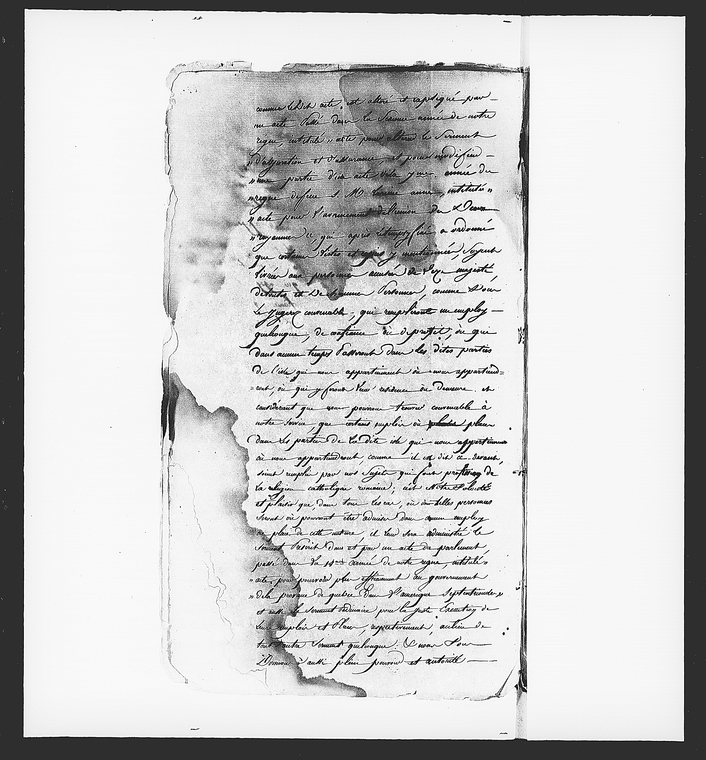 comme ledit acte, est altéré et expliqué par
un acte Passé dans la Sixieme année de notre
regne, intitulé "acte pour altérer le Serment
"d'abjuration et d'assurance, et pour modifier
"une partie d'un acte de la année du
"regne de feue S. M. la Reine anne, intitulé"
"acte pour l'avancement de l'union des Deux
"royaumes ce qui après le tems fixé a ordonné
que certaines listes et copies y mentionnées, Soyent
livrées aux personnes accusées de haute
et de Donner Personnes, comme Vous
le Jugerez convenable, qui rempliront un employ
quelconque, de confiance ou de profit, ou qui
dans aucun temps Passeront dans les dites parties
de l'isle qui nous appartiennent ou nous appartiend
ront, ou qui y feront leur residence ou demeure, et
considerant que nous pouvons trouver convenable à
notre Service, que certains emplois ou places
dans les parties de la dite isle qui nous appartiennent
où nous appartiendront comme il est dit ci devant
soient remplis par nos Sujets qui font profession de
la religion catholique romaine; c'est Notre Volonté
et plaisir que dans tous les cas, où de telles personnes
Seront où pourront être admises dans aucun employ
ou place de cette nature, il leur Sera administré le
Serment Prescrit dans et par un acte de parlement,
passé dans la 14me année de notre regne, intitulé"
"acte pour pourvoir plus efficacement au gouvernement
"de la province de quebec dans l'amerique Septentrionale"
et aussi le Serment ordinaire pour la juste Execution de
leurs emplois et Places, respectivement, au lieu de
tout autre Serment quelconque. Et nous Vous
Donnons aussi plein pouvoir et autorité